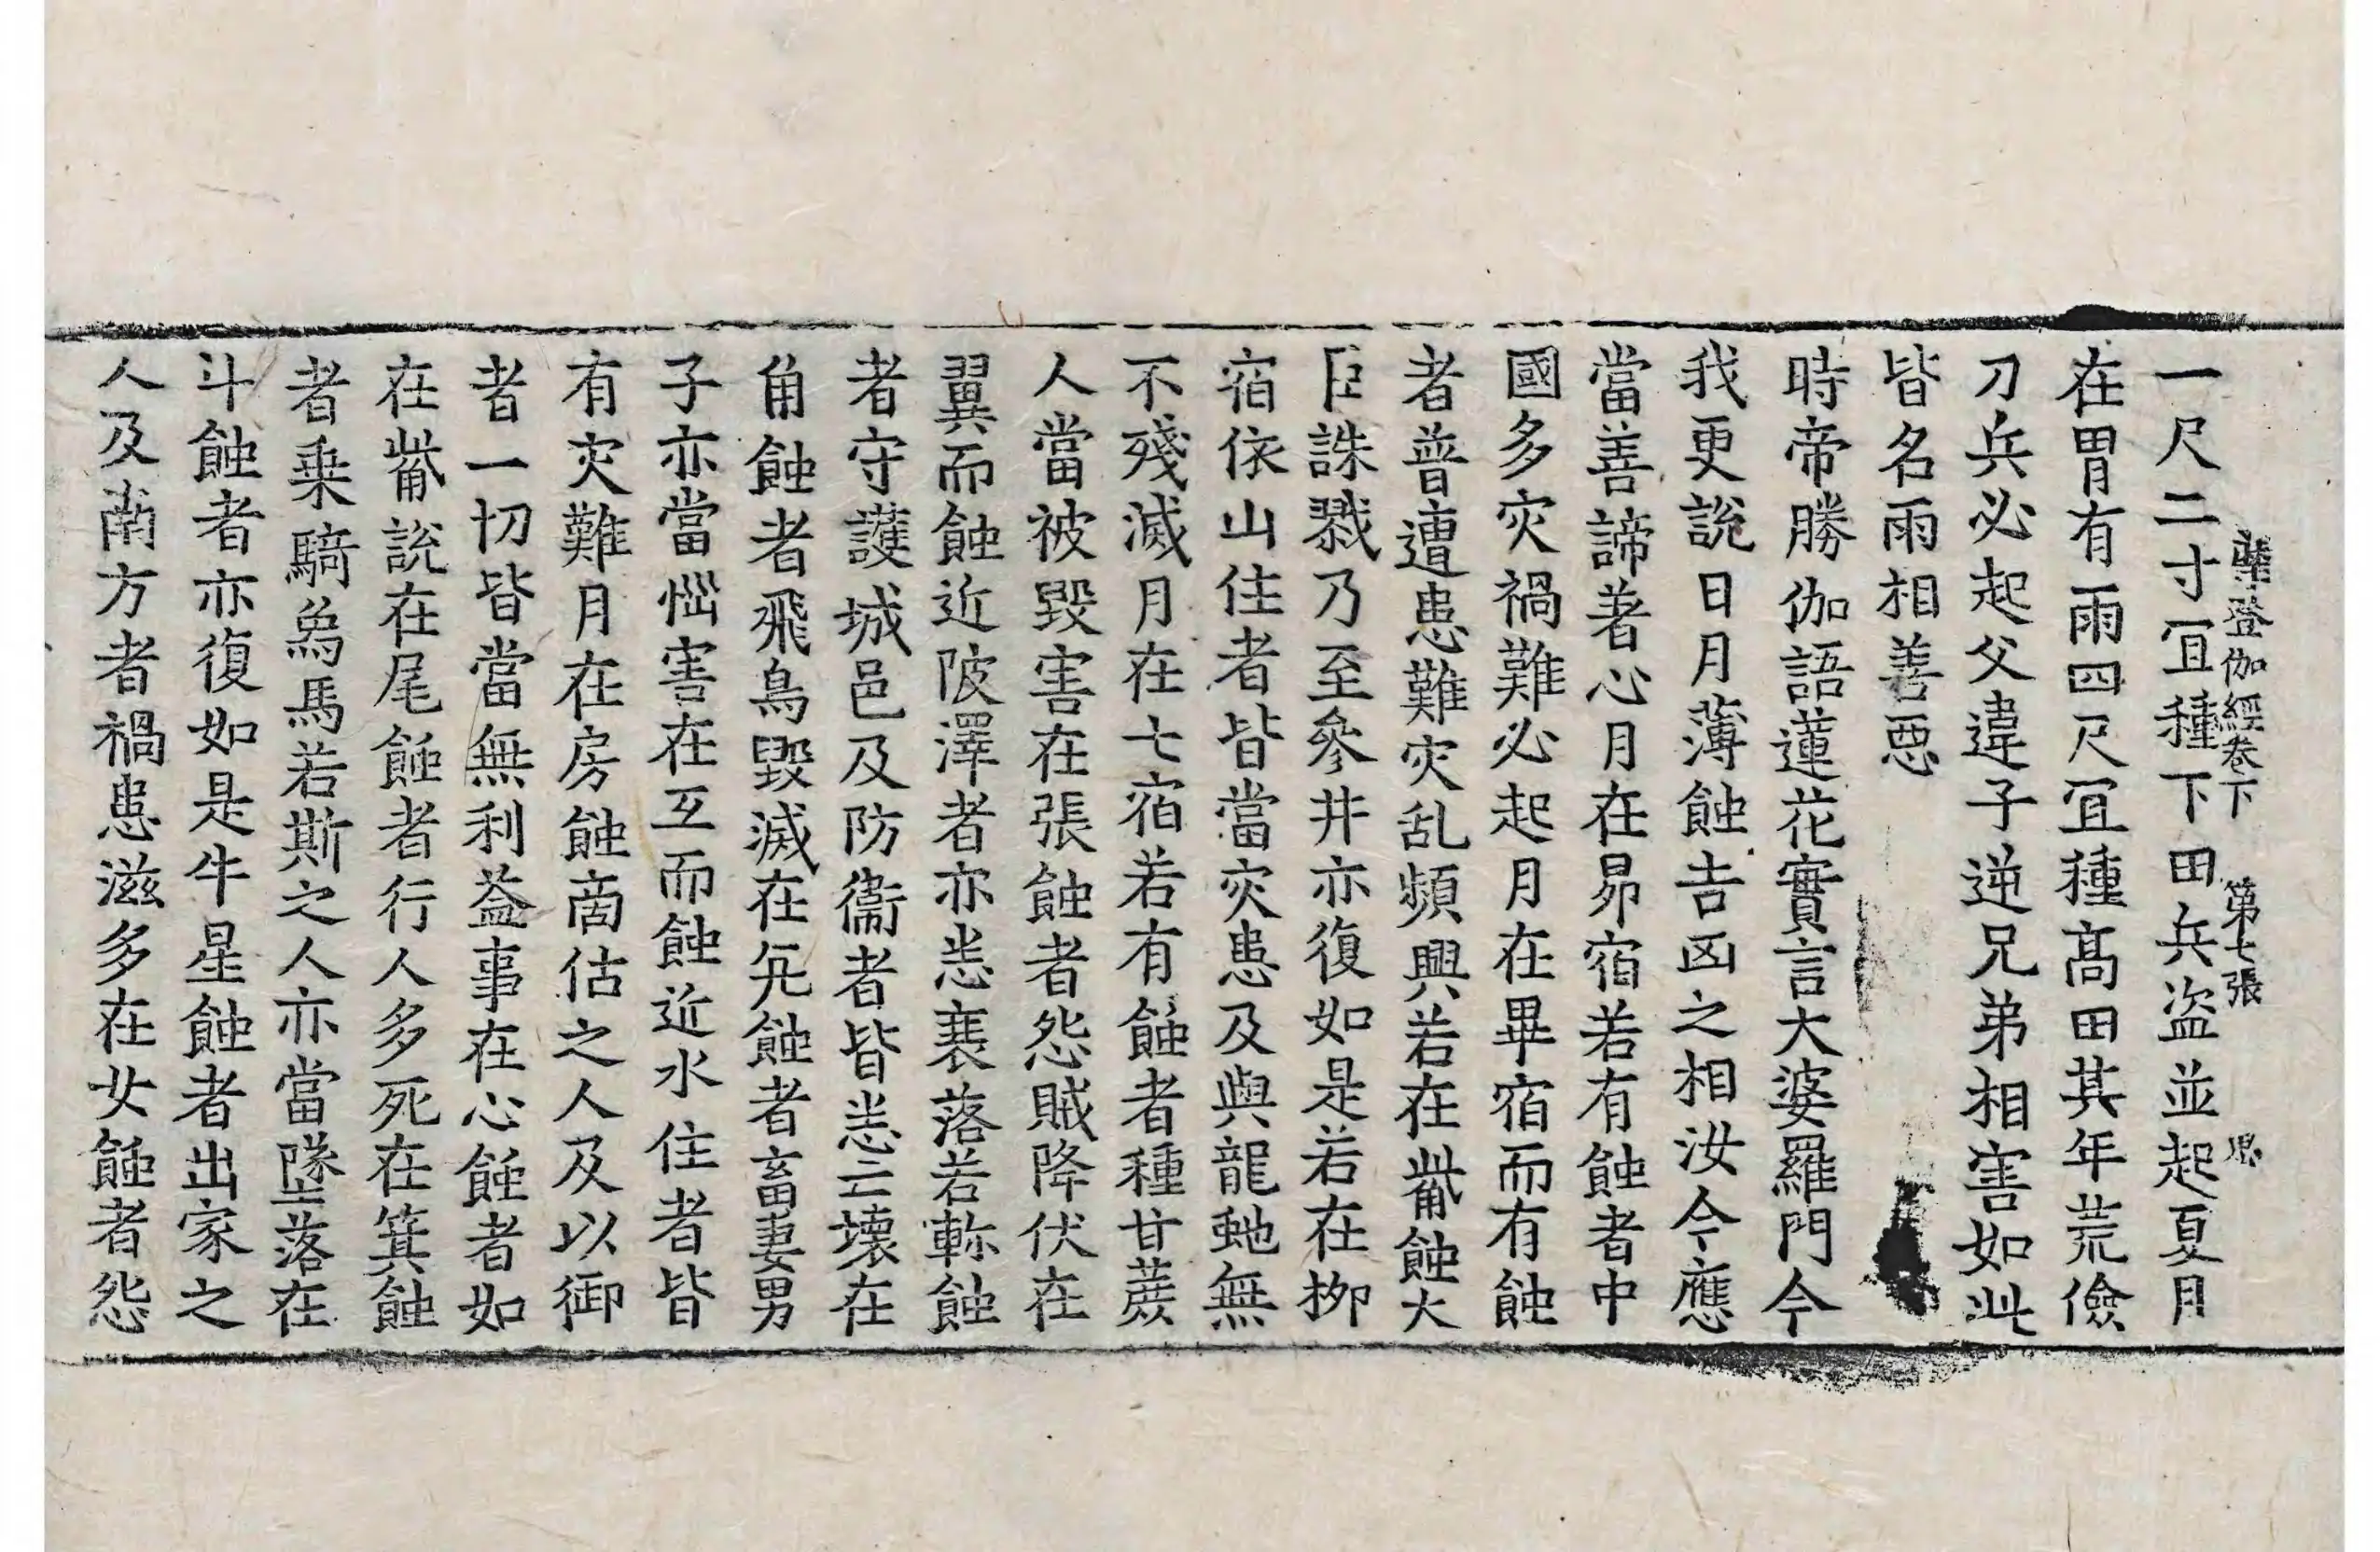 一尺二寸冝種下田兵盗並起夏月
摩登伽經卷下　第七張　思
在胃有雨四尺冝種髙田其年荒儉
刀兵必起父違子逆兄弟相害如此
皆名雨相善惡
時帝勝伽語蓮花實言大婆羅門今
我更說日月薄蝕吉凶之相汝今應
當善諦著心月在昴宿若有蝕者中
國多灾禍難必起月在畢宿而有蝕
者普遭患難灾乱頻興若在觜蝕大
臣誅戮乃至參井亦復如是若在柳
宿依山住者皆當灾患及與龍虵無
不殘滅月在七宿若有蝕者種甘蔗
人當被毀害在張蝕者怨賊降伏在
翼而蝕近陂澤者亦恙衰落若軫蝕
者守護城邑及防衞者皆恙亡壞在
角蝕者飛鳥毀滅在亢蝕者畜妻男
子亦當惱害在互而蝕近水住者皆
有灾難月在房蝕啇估之人及以御
者一切皆當無利益事在心蝕者如
在觜說在尾蝕者行人多死在箕蝕
者乗騎象馬若斯之人亦當墜落在
斗蝕者亦復如是牛星蝕者出家之
人及南方者禍患滋多在女蝕者怨